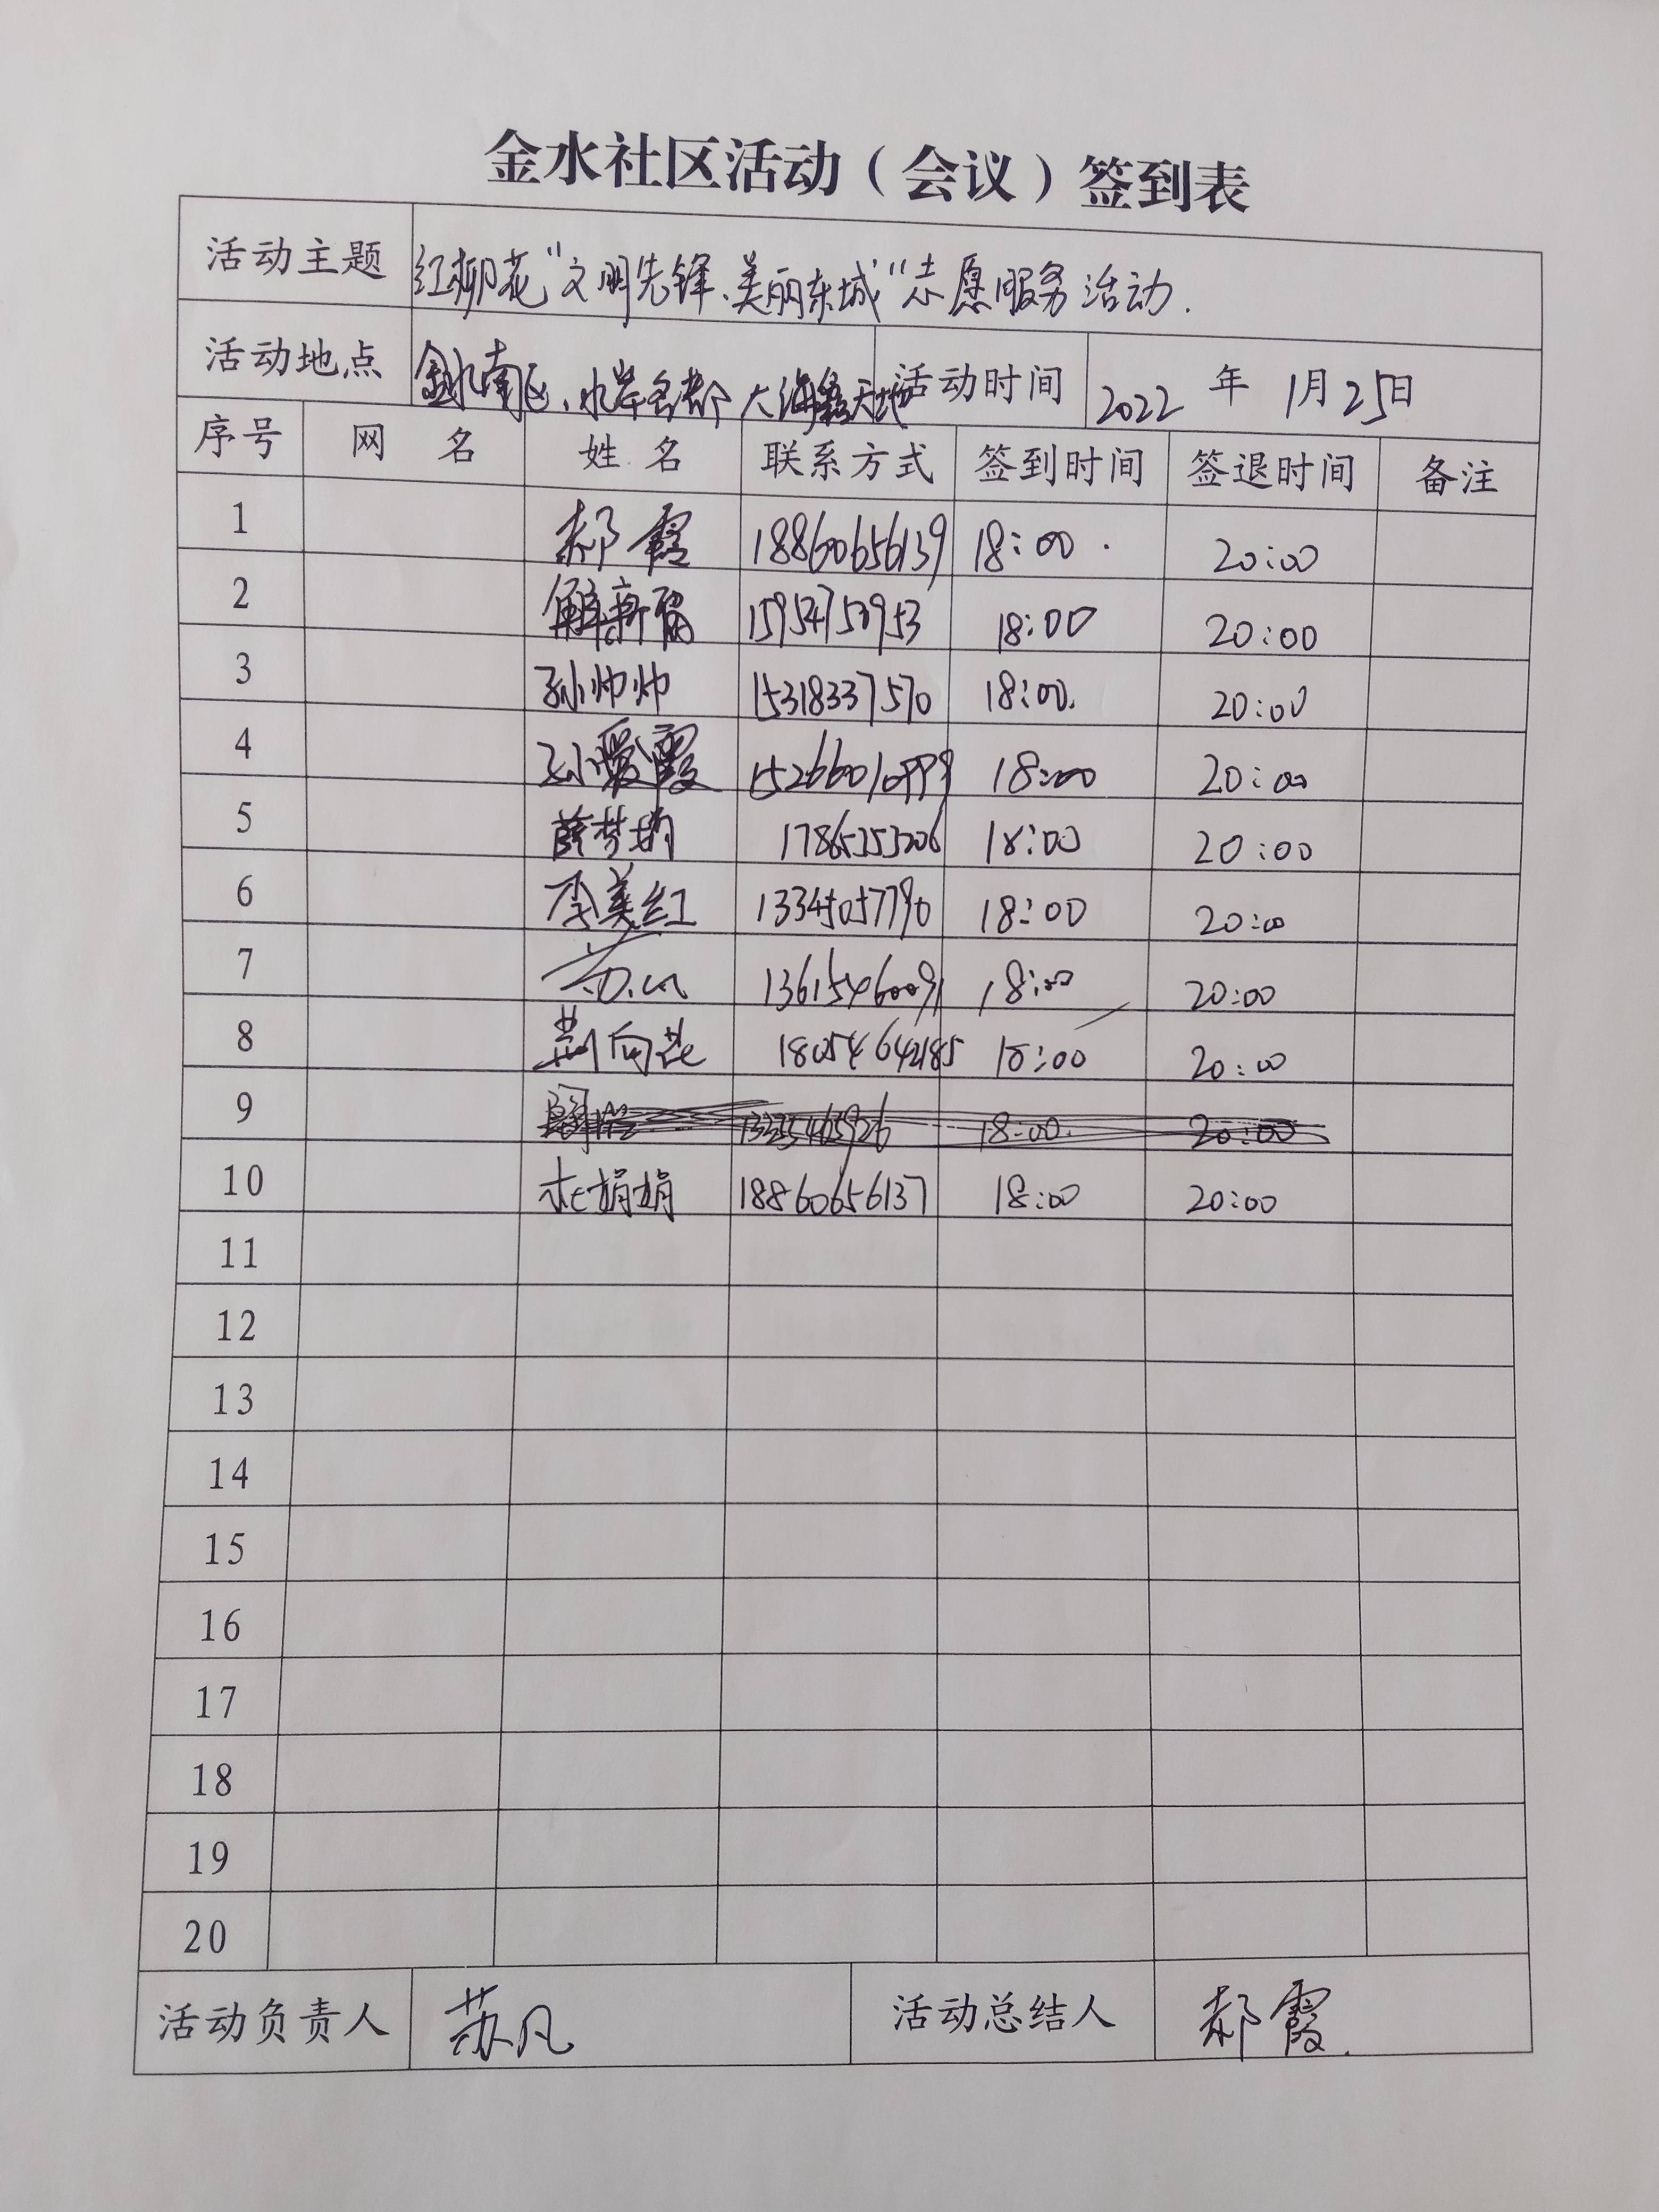 金水社区活动（会议）签到表
活动主题 红柳花“文明先锋、美丽东城”志愿服务活动.
活动地点 金水南区、水岸名都 大海天地 活动时间 2022 年 1月25日
序号 网 名 姓 名 联系方式 签到时间 签退时间 备注
1 郝霞 18860656139 18:00 20:00
2 解新 15954753953 18:00 20:00
3 孙帅帅 15318337570 18:00. 20:00
4 孙爱霞 15266010999 18:00 20:00
5 薛梦娟 17865253206 18:00 20:00
6 李美红 13345057790 18:00 20:00
7 13615460091 18:00 20:00
8 荆向花 18054642185 18:00 20:00
9 18:00. 20:00
10 杜娟娟 18860656137 18:00 20:00
11
12
13
14
15
16
17
18
19
20
活动负责人 苏凡 活动总结人 郝霞.